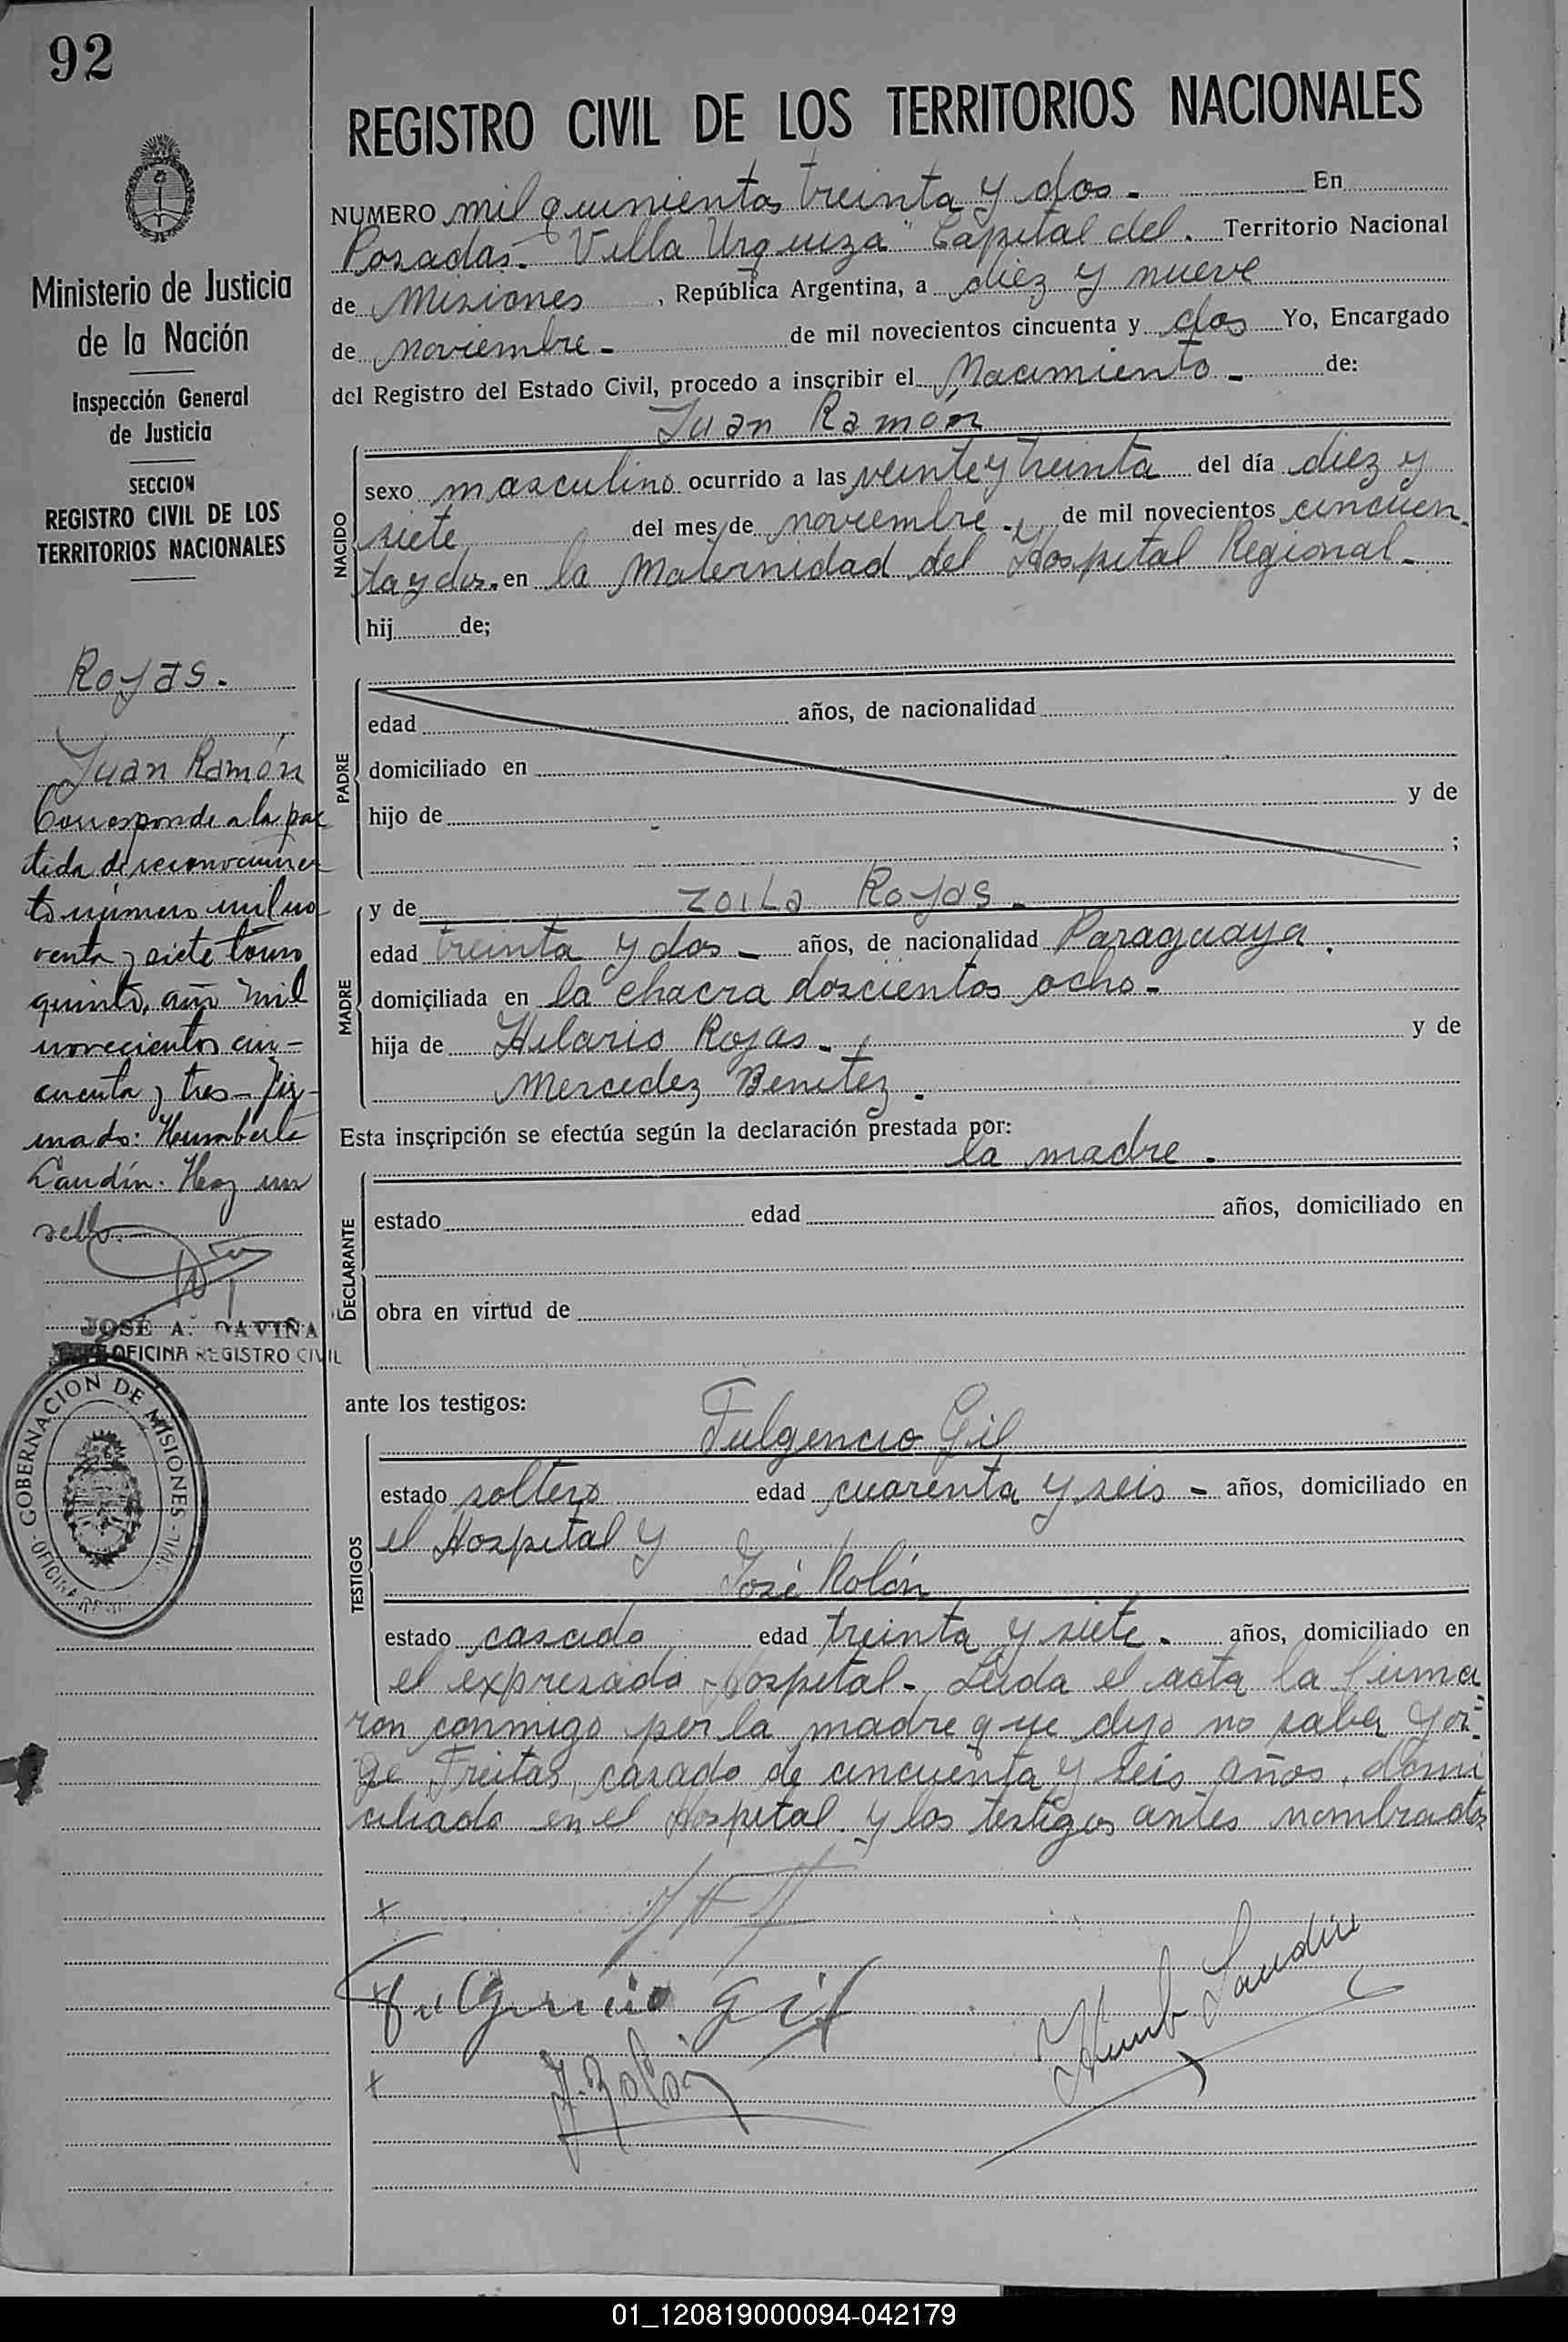 92
REGISTRO CIVIL DE LOS TERRITORIOS NACIONALES
NUMERO mil quinientos treinta y dos - En
Posadas - "Villa Urquiza" Capital del. Territorio Nacional
de Misiones, República Argentina, a diez y nueve
de noviembre - de mil novecientos cincuenta y dos Yo, Encargado
del Registro del Estado Civil, procedo a inscribir el Nacimiento - de:
Juan Ramón
NACIDO
sexo masculino ocurrido a las veinte y treinta del día diez y
siete del mes de noviembre - de mil novecientos cincuen
ta y dos. en la Maternidad del Hospital Regional -
hij de;
PADRE
edad años, de nacionalidad
domiciliado en
hijo de y de
;
MADRE
y de Zoila Rojas -
edad treinta y dos - años, de nacionalidad Paraguaya.
domiciliada en la chacra doscientos ocho -
hija de Hilario Rojas - y de
Mercedez Benitez.
Esta inscripción se efectúa según la declaración prestada por:
la madre.
DECLARANTE
estado edad años, domiciliado en
obra en virtud de
ante los testigos:
Fulgencio Gil
TESTIGOS
estado soltero edad cuarenta y seis - años, domiciliado en
el Hospital y
José Rolón
estado casado edad treinta y siete. años, domiciliado en
el expresado Hospital - Leida el acta la firma
ron conmigo por la madre que dijo no saber Jor-
ge Freitas, casado de cincuenta y seis años, domi
ciliado en el Hospital y los testigos antes nombrados
Fulgencio Gil
J. Rolón
Humb Landin
Ministerio de Justicia
de la Nación
Inspección General
de Justicia
SECCION
REGISTRO CIVIL DE LOS
TERRITORIOS NACIONALES
Rojas.
Juan Ramón
Corresponde a la par
tida de reconocimien
to número mil no
venta y siete tomo
quinto, año mil
novecientos cin-
cuenta y tres - Fir-
mado: Humberto
Landín. Hay un
sello.
JOSE A. DAVIÑA
OFICINA REGISTRO CIVIL
GOBERNACION DE MISIONES
01_120819000094-042179